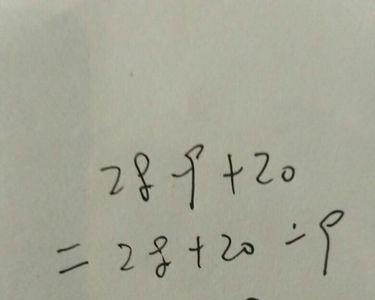 28-9+20
=28+20-9